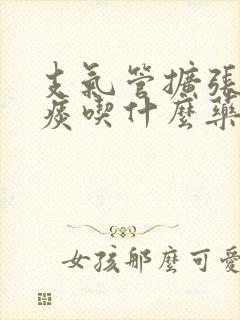 支氣管擴張
痰喫什麼藥
女孩那麼可愛